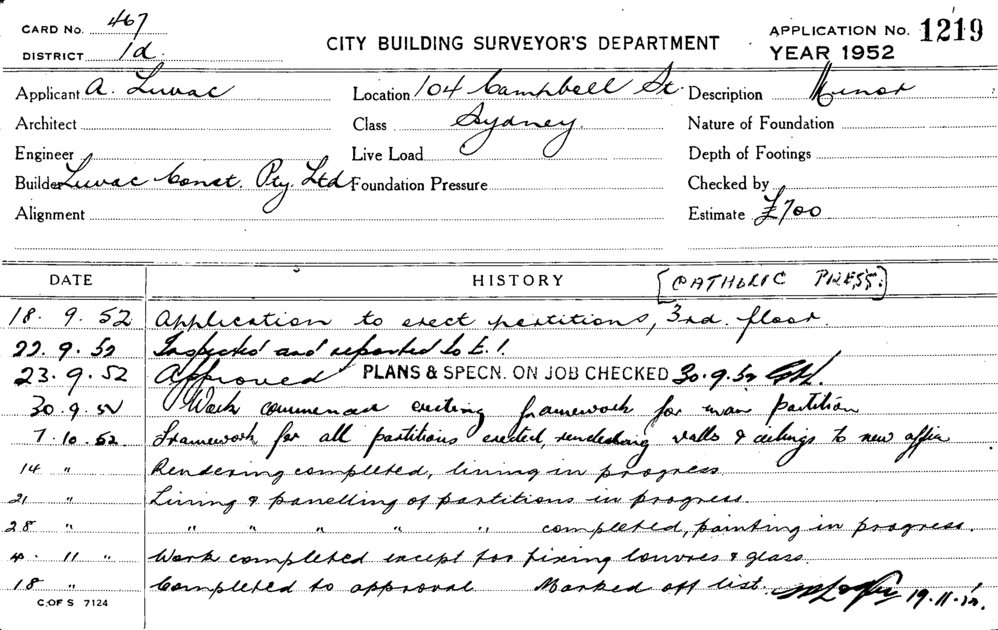 CARD No. 467
DISTRICT 1d.
CITY BUILDING SURVEYOR'S DEPARTMENT
APPLICATION No. 1219
YEAR 1952
Applicant A. Luvac Location 104 Campbell St. Description Minor
Architect Class Sydney. Nature of Foundation
Engineer Live Load Depth of Footings
Builder Luvac Const. Pty. Ltd Foundation Pressure Checked by
Alignment Estimate £700
DATE HISTORY [CATHOLIC PRESS.]
18. 9. 52 Application to erect partitions, 3rd. floor.
22. 9. 52 Inspected and reported to E.1.
23. 9. 52 Approved PLANS & SPECN. ON JOB CHECKED 30.9.52
30. 9. 52 Work commenced erecting framework for main partition
7. 10. 52 Framework for all partitions erected, rendering walls & ceilings to new office
14 " Rendering completed, lining in progress.
21 " Lining & panelling of partitions in progress.
28 " " " " " " completed, painting in progress.
4. 11 " Work completed except for fixing louvres & glass.
18 " Completed to approval. Marked off list. 19.11.52.
C. OF S 7124